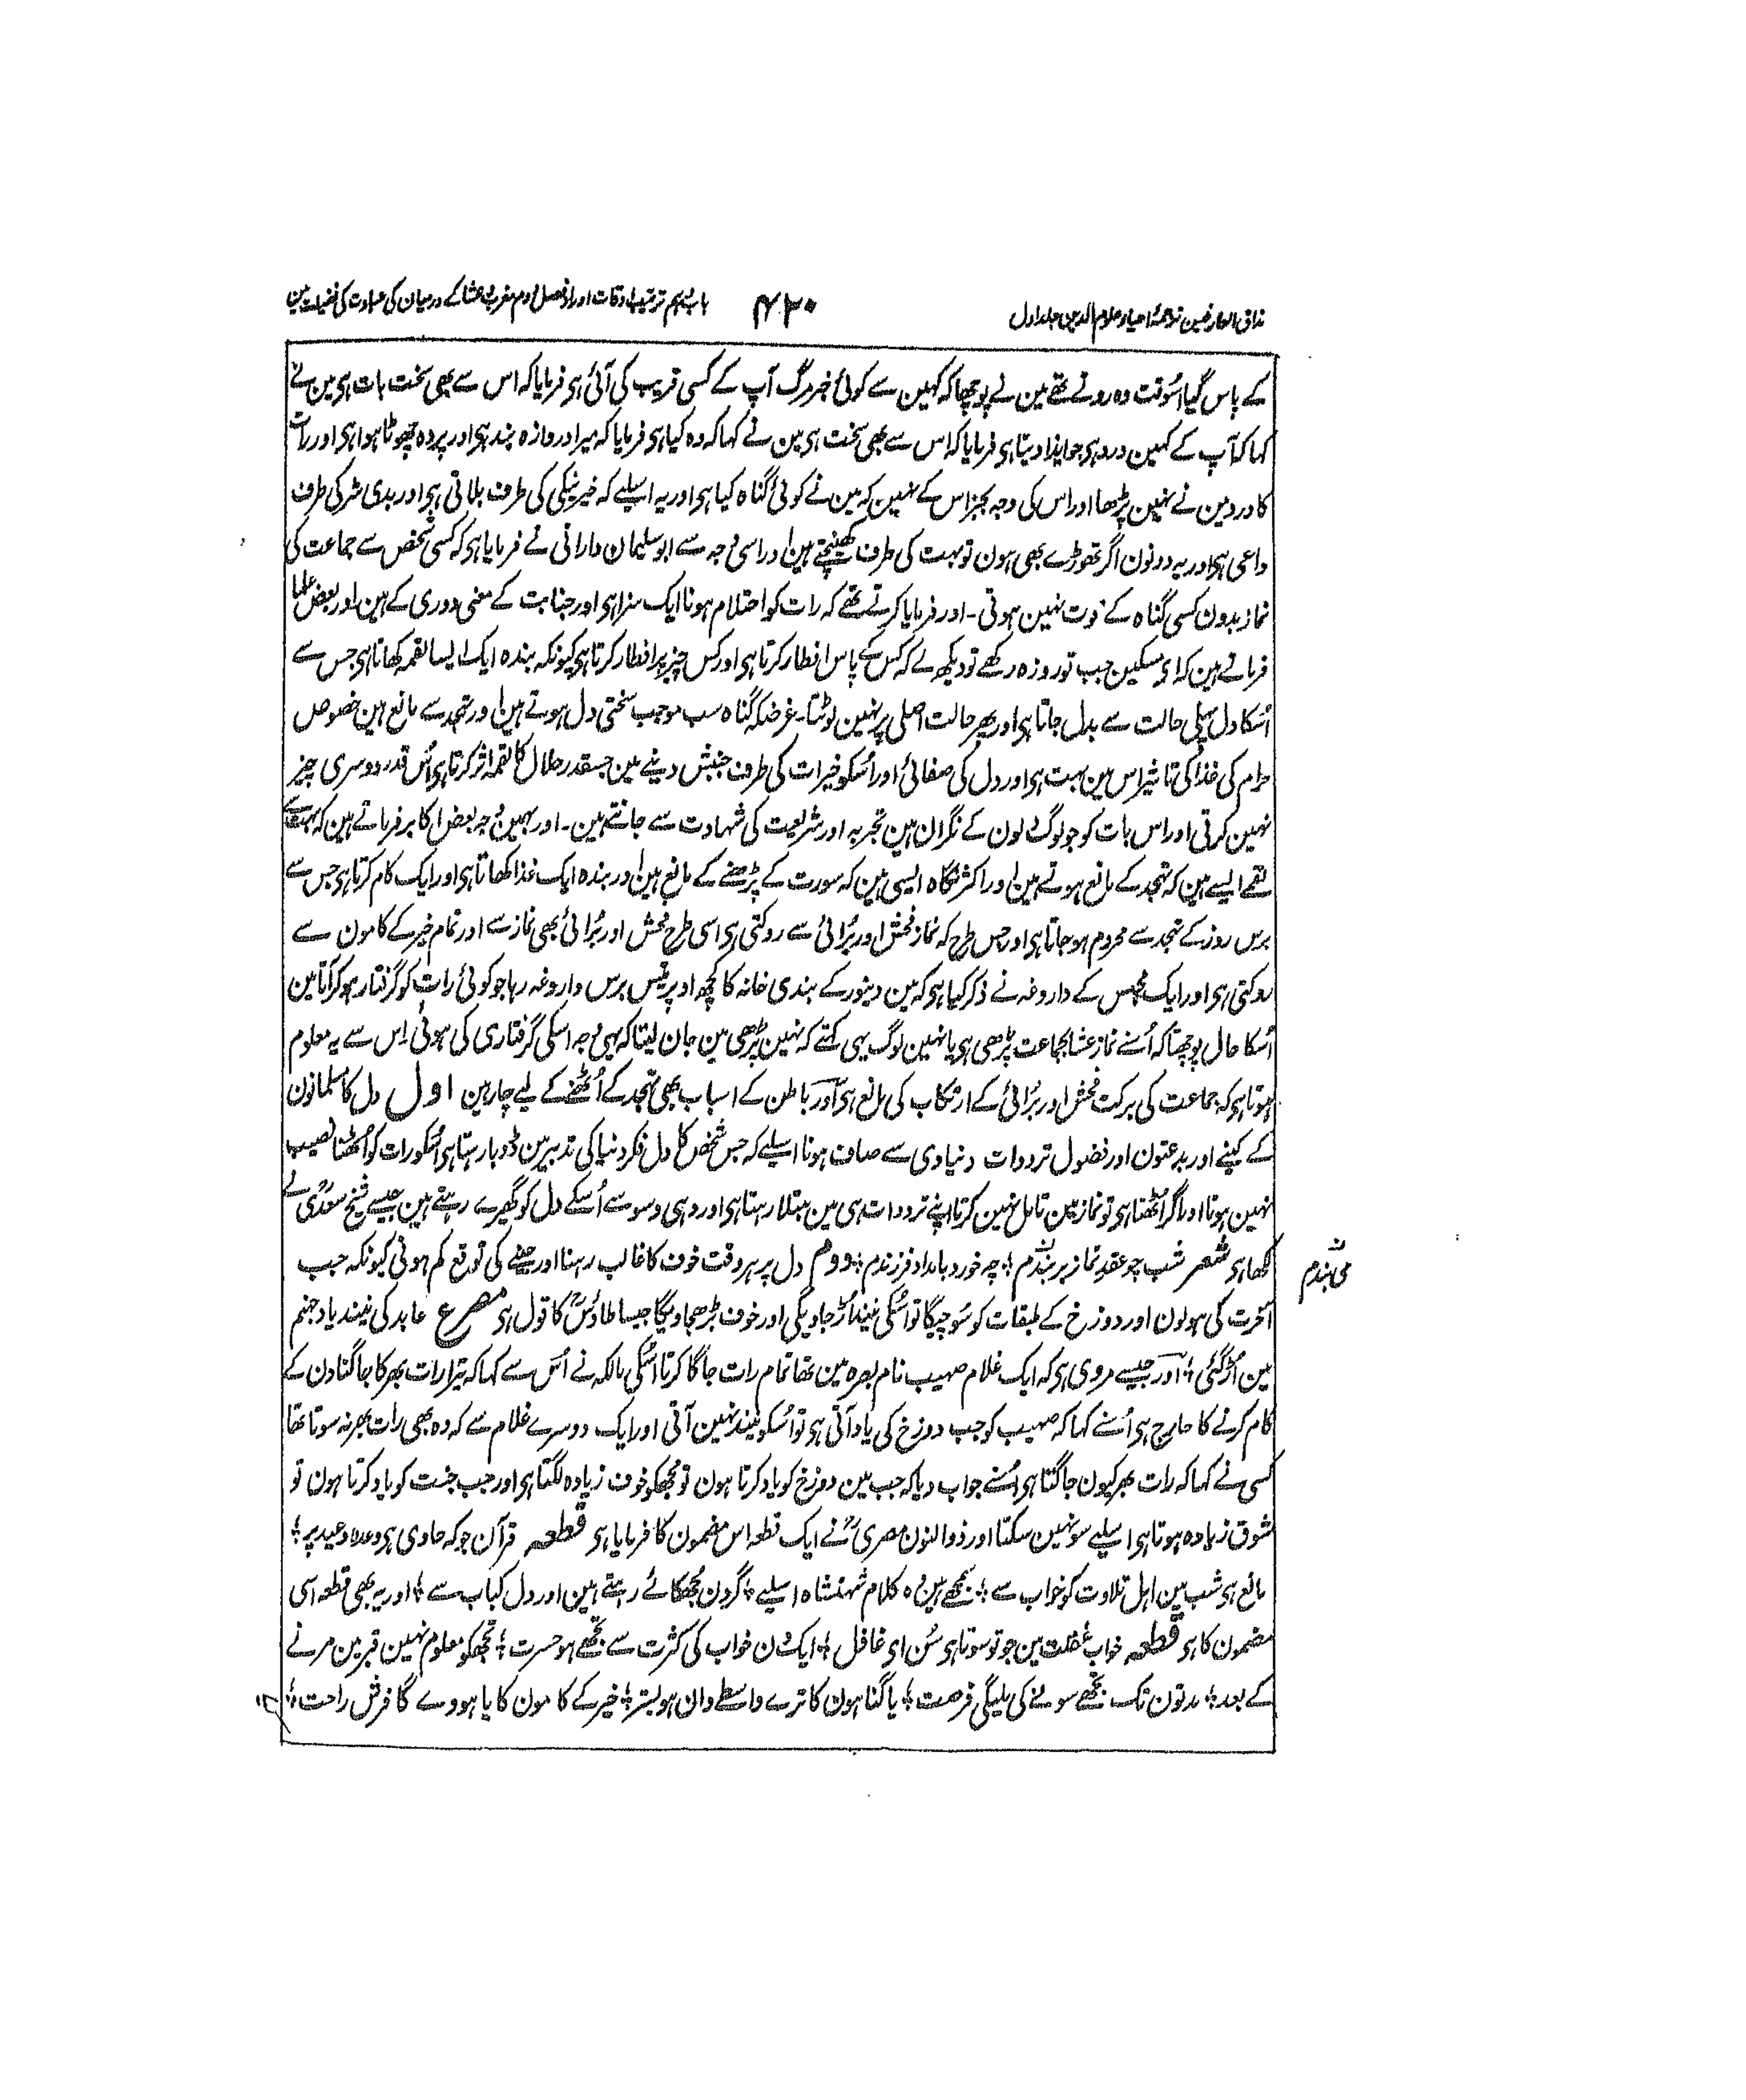 مذاق العارفین ترجمۂ احیاء علوم الدین جلد اول
۴۲۰
باب دہم ترتیب اوقات اوراد فصل دوم مغرب و عشا کے درمیان کی عبادت کی فضیلت مین
کے پاس گیا اسوقت وہ روتے تھے مین نے پوچھا کہ کہین سے کوئی خبر مرگ آپ کے کسی قریب کی آئی ہی فرمایا کہ اس سے بھی سخت بات ہی مین نے
کہا کہ آپ کے کہین درد ہی جو ایذا دیتا ہی فرمایا کہ اس سے بھی سخت ہی مین نے کہا کہ وہ کیا ہی فرمایا کہ میرا دروازہ بند ہی اور پردہ چھوٹا ہوا ہی اور رات
کا ورد مین نے نہین پڑھا اور اس کی وجہ بجز اس کے نہین کہ مین نے کوئی گناہ کیا ہی اور یہ اسلیے کہ خیر نیکی کی طرف بلاتی ہی اور بدی شر کی طرف
داعی ہی اور یہ دونون اگر تھوڑے بھی ہون تو بہت کی طرف کھینچتے ہین اور اسی وجہ سے ابو سلیمان دارانی نے فرمایا ہی کہ کسی شخص سے جماعت کی
نماز بدون کسی گناہ کے فوت نہین ہوتی ۔ اور فرمایا کرتے تھے کہ رات کو احتلام ہونا ایک سزا ہی اور جنابت کے معنی دوری کے ہین اور بعض علما
فرماتے ہین کہ ای مسکین جب تو روزہ رکھے تو دیکھ لے کہ کس کے پاس افطار کرتا ہی اور کس چیز پر افطار کرتا ہی کیونکہ بندہ ایک ایسا لقمہ کھاتا ہی جس سے
اُسکا دل پہلی حالت سے بدل جاتا ہی اور پھر حالت اصلی پر نہین لوٹتا ۔ غرضکہ گناہ سب موجب سختی دل ہوتے ہین اور تہجد سے مانع ہین خصوص
حرام کی غذا کی تاثیر اس مین بہت ہی اور دل کی صفائی اور اُسکو خیرات کی طرف جنبش دینے مین جسقدر حلال کا لقمہ اثر کرتا ہی اُس قدر دوسری چیز
نہین کرتی اور اس بات کو جو لوگ دلون کے نگران ہین تجربہ اور شریعت کی شہادت سے جانتے ہین ۔ اور بہین وجہ بعض اکابر فرماتے ہین کہ بہت سے
لقمے ایسے ہین کہ تہجد کے مانع ہوتے ہین اور اکثر نگاہ ایسی ہین کہ سورت کے پڑھنے کے مانع ہین اور بندہ ایک غذا کھاتا ہی اور ایک کام کرتا ہی جس سے
برس روز کے تہجد سے محروم ہو جاتا ہی اور جس طرح کہ نماز فحش اور بُرائی سے روکتی ہی اسی طرح فحش اور بُرائی بھی نماز سے اور تمام خیر کے کامون سے
روکتی ہی اور ایک محبس کے داروغہ نے ذکر کیا ہی کہ مین دینور کے بندی خانہ کا کچھ اوپر تیس برس داروغہ رہا جو کوئی رات کو گرفتار ہو کر آتا مین
اُسکا حال پوچھتا کہ اُسنے نماز عشا بجماعت پڑھی ہی یا نہین لوگ یہی کہتے کہ نہین پڑھی مین جان لیتا کہ یہی وجہ اسکی گرفتاری کی ہوئی اِس سے یہ معلوم
ہوتا ہی کہ جماعت کی برکت فحش اور بُرائی کے ارتکاب کی مانع ہی اور باطن کے اسباب بھی تہجد کے اُٹھنے کے لیے چار ہین اول دل کا مسلمانون
کے کینے اور بدعتون اور فضول ترددات دنیاوی سے صاف ہونا اسلیے کہ جس شخص کا دل فکر دنیا کی تدبیر مین ڈوبا رہتا ہی اُسکو رات کو اُٹھنا نصیب
نہین ہوتا اور اگر اُٹھتا ہی تو نماز مین تامل نہین کرتا اپنے ترددات ہی مین مبتلا رہتا ہی اور وہی وسوسے اُسکے دل کو گھیرے رہتے ہین جیسے شیخ سعدیؒ نے
لکھا ہی شعر شب چو عقد نماز بر بندم ؛ چہ خورد بامداد فرزندم ؛ دوم دل پر ہر وقت خوف کا غالب رہنا اور جینے کی توقع کم ہونی کیونکہ جب
می بندم
آخرت کی ہولون اور دوزخ کے طبقات کو سوچیگا تو اُسکی نیند اُڑ جاویگی اور خوف بڑھجاویگا جیسا طاؤسؒ کا قول ہی مصرع عابد کی نیند یاد جہنم
مین اُڑ گئی ؛ اور جیسے مروی ہی کہ ایک غلام صہیب نام بصرہ مین تھا تمام رات جاگا کرتا اُسکی مالکہ نے اُس سے کہا کہ تیرا رات بھر کا جاگنا دن کے
کام کرنے کا حارج ہی اُسنے کہا کہ صہیب کو جب دوزخ کی یاد آتی ہی تو اُسکو نیند نہین آتی اور ایک دوسرے غلام سے کہ وہ بھی رات بھر نہ سوتا تھا
کسی نے کہا کہ رات بھر کیون جاگتا ہی اُسنے جواب دیا کہ جب مین دوزخ کو یاد کرتا ہون تو مجھکو خوف زیادہ لگتا ہی اور جب جنت کو یاد کرتا ہون تو
شوق زیادہ ہوتا ہی اسلیے سو نہین سکتا اور ذوالنون مصریؒ نے ایک قطعہ اس مضمون کا فرمایا ہی قطعہ قرآن جو کہ حاوی ہی وعدہ وعید پر ؛
مانع ہی شب مین اہل تلاوت کو خواب سے ؛ سمجھے ہین وہ کلام شہنشاہ اسلیے ؛ گردن جُھکائے رہتے ہین اور دل کباب سے ؛ اور یہ بھی قطعہ اسی
مضمون کا ہی قطعہ خواب غفلت مین جو تو سوتا ہی سُن ای غافل ؛ ایک دن خواب کی کثرت سے تجھے ہو حسرت ؛ تجھکو معلوم نہین قبر مین مرنے
کے بعد ؛ مدتون تک تجھے سونے کی ملیگی فرصت ؛ یا گناہون کا ترے واسطے وان ہو بستر ؛ خیر کے کامون کا یا ہووے گا فرش راحت ؛